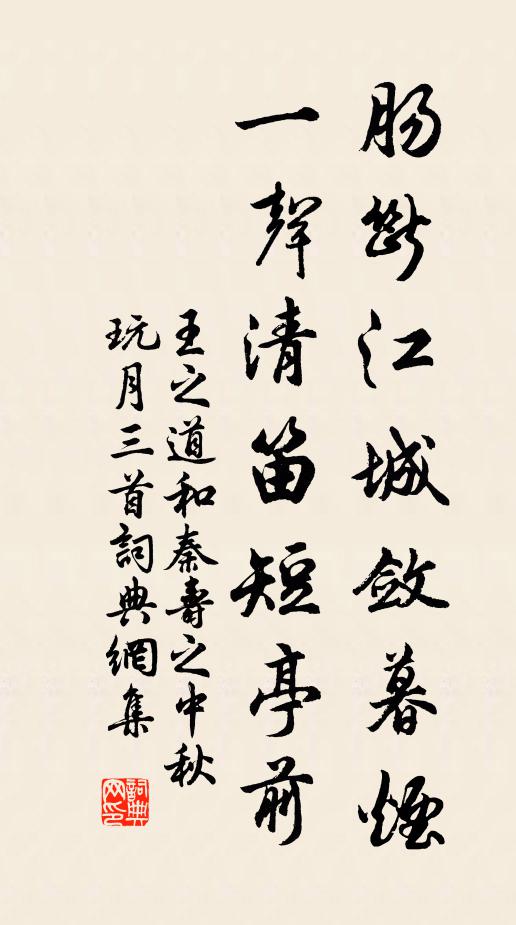 腸斷江城斂暮煙
一聲清笛短亭前
王之道和秦壽之中秋
玩月三首詞典網集
詞典
网印